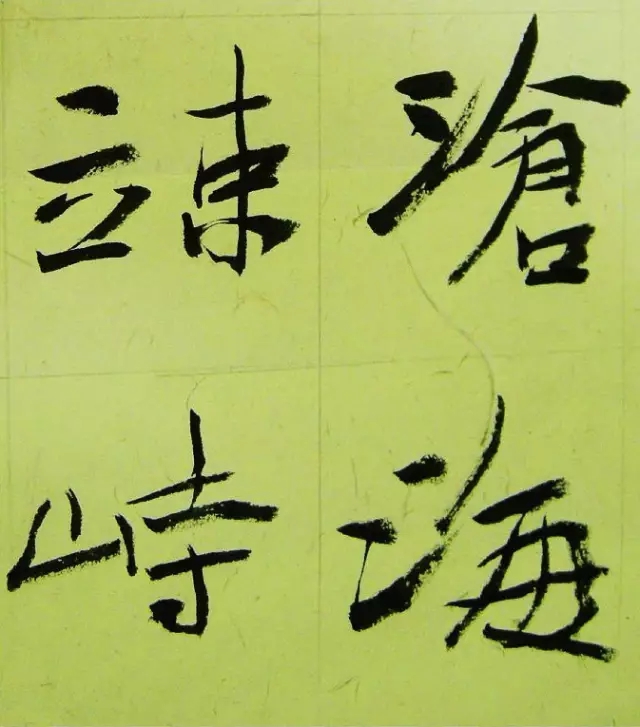 滄海
竦峙